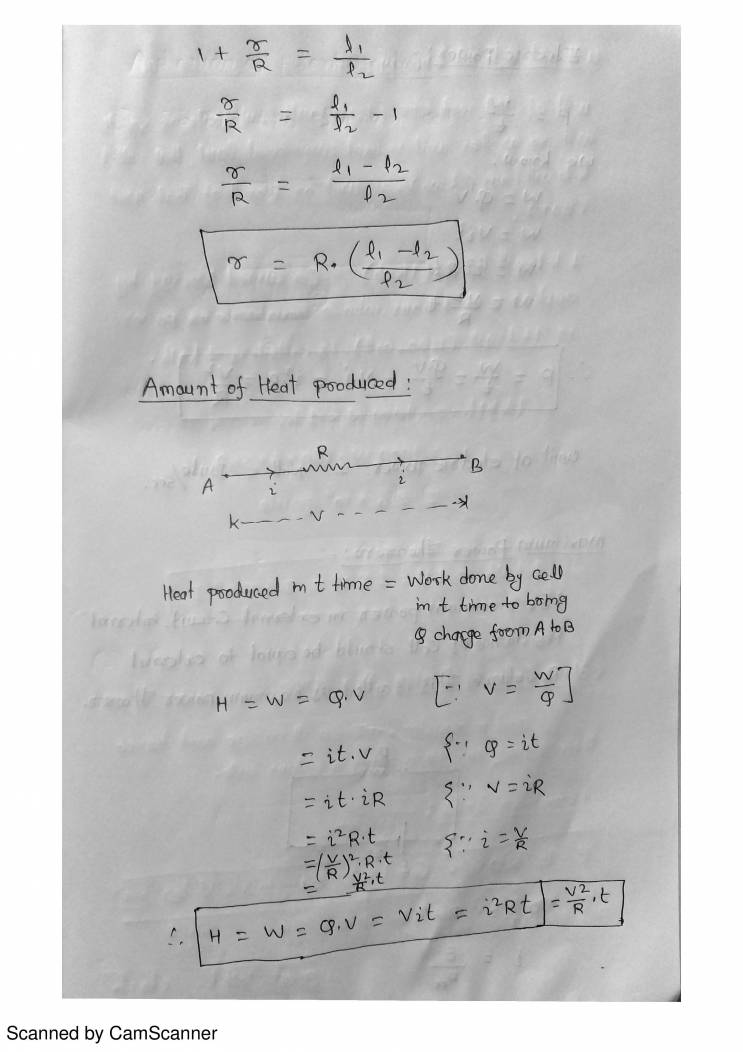 1 + r/R = l₁/l₂
r/R = l₁/l₂ - 1
r/R = (l₁ - l₂)/l₂
r = R. ((l₁ - l₂)/l₂)
Amount of Heat produced :
R
A i i B
V
Heat produced in t time = Work done by cell
in t time to bring
Q charge from A to B
H = W = Q.V [∵ V = W/Q]
= it.V {∵ Q = it
= it.iR {∵ V = iR
= i²R.t {∵ i = V/R
= (V/R)².R.t
= V²/R.t
∴ H = W = Q.V = Vit = i²Rt = V²/R.t
Scanned by CamScanner